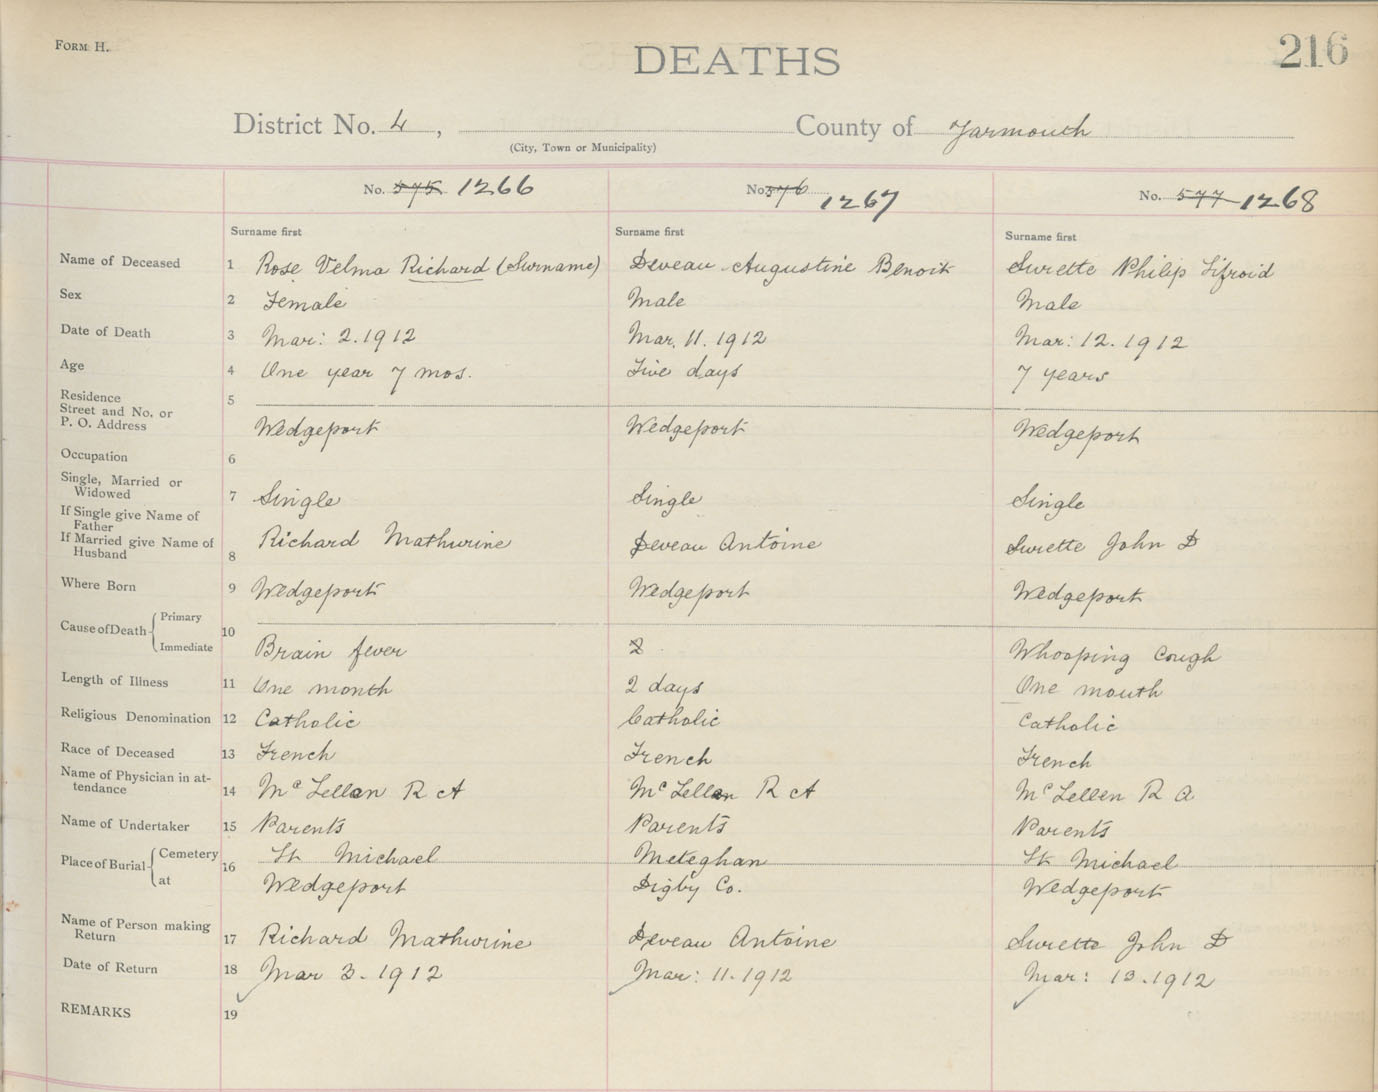 FORM H.
DEATHS
216
District No. 4, County of Yarmouth
(City, Town or Municipality)
No. 575 1266 No. 576 1267 No. 577 1268
Surname first Surname first Surname first
Name of Deceased 1 Rose Velma Richard (Surname) Deveau Augustine Benoit Surette Philip Sifroid
Sex 2 Female Male Male
Date of Death 3 Mar: 2. 1912 Mar. 11. 1912 Mar: 12. 1912
Age 4 One year 7 mos. Five days 7 years
Residence 5
Street and No. or
P. O. Address Wedgeport Wedgeport Wedgeport
Occupation 6
Single, Married or
Widowed 7 Single Single Single
If Single give Name of
Father
If Married give Name of
Husband 8 Richard Mathurine Deveau Antoine Surette John D
Where Born 9 Wedgeport Wedgeport Wedgeport
Cause of Death Primary 10
Immediate Brain fever Whooping Cough
Length of Illness 11 One month 2 days One month
Religious Denomination 12 Catholic Catholic Catholic
Race of Deceased 13 French French French
Name of Physician in at-
tendance 14 McLellan R A McLellan R A McLellen R A
Name of Undertaker 15 Parents Parents Parents
Place of Burial Cemetery 16 St Michael Meteghan St Michael
at Wedgeport Digby Co. Wedgeport
Name of Person making
Return 17 Richard Mathurine Deveau Antoine Surette John D
Date of Return 18 Mar 3. 1912 Mar: 11. 1912 Mar: 13. 1912
REMARKS 19